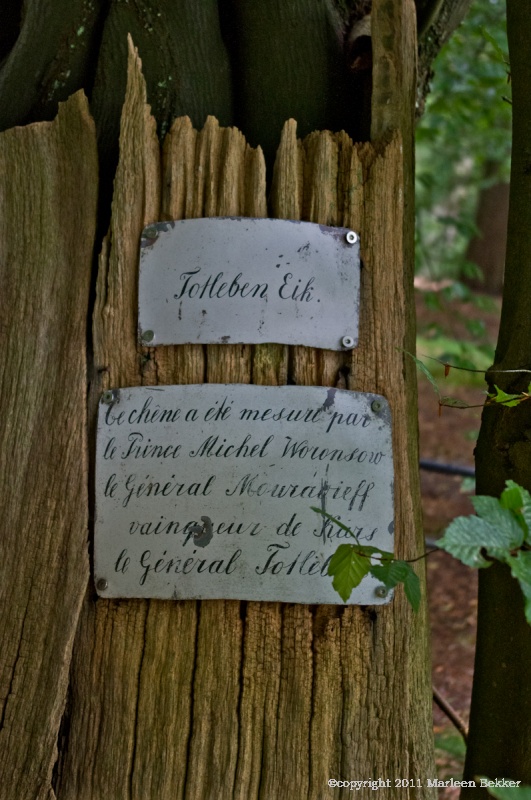 Totleben Eik.
Ce chêne a été mesuré par
le Prince Michel Woronsow
le Général Mouravieff
vainqueur de Kars
le Général
©copyright 2011 Marleen Bekker